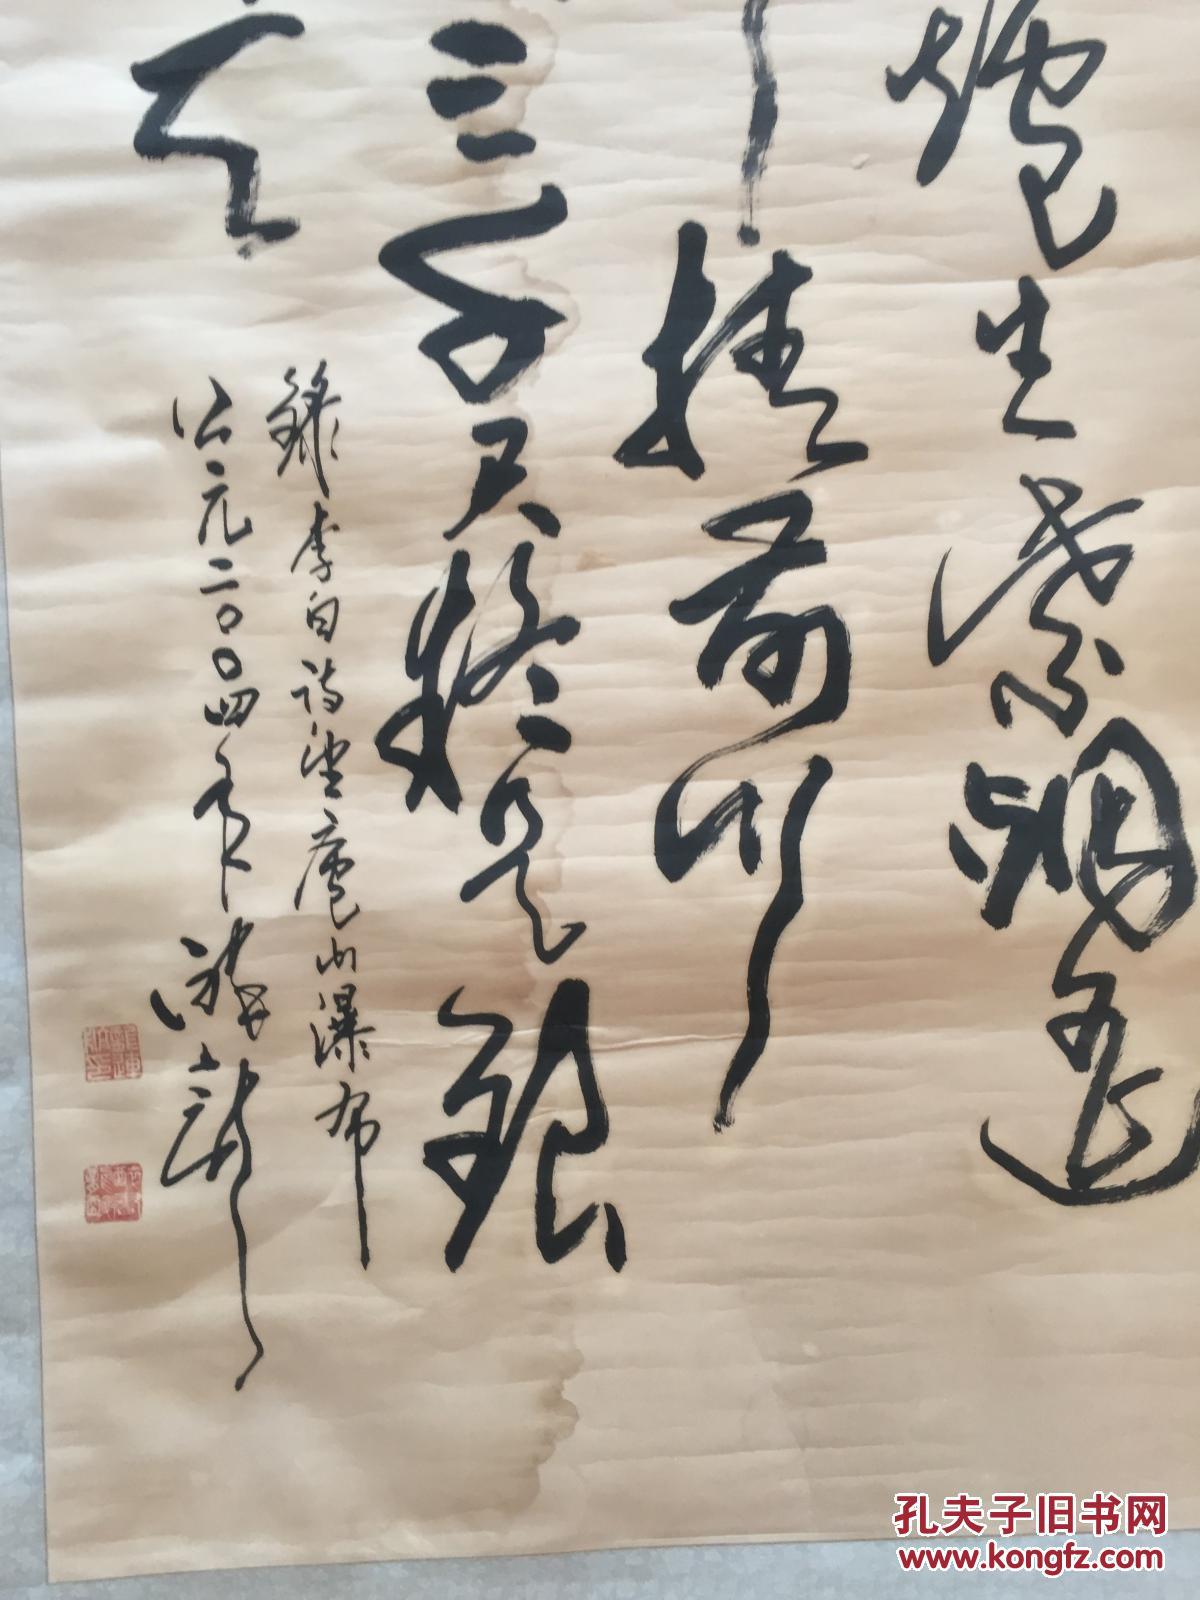 爐生紫烟遥
挂前川
三千尺疑是銀
天
錄李白詩望廬山瀑布
公元二〇〇四年
孔夫子旧书网
www.kongfz.com